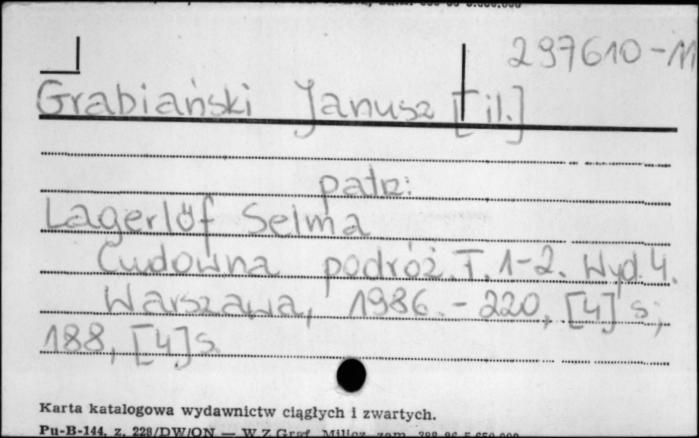 297610-M
Grabiański Janusz [il.]
patrz:
Lagerlöf Selma
Cudowna podróż. T. 1-2. Wyd. 4.
Warszawa, 1986. - 220, [4] s;
188, [4] s.
Karta katalogowa wydawnictw ciągłych i zwartych.
Pu-B-144, z. 228/DW/ON — W.Z.Graf. Milicz, zam.